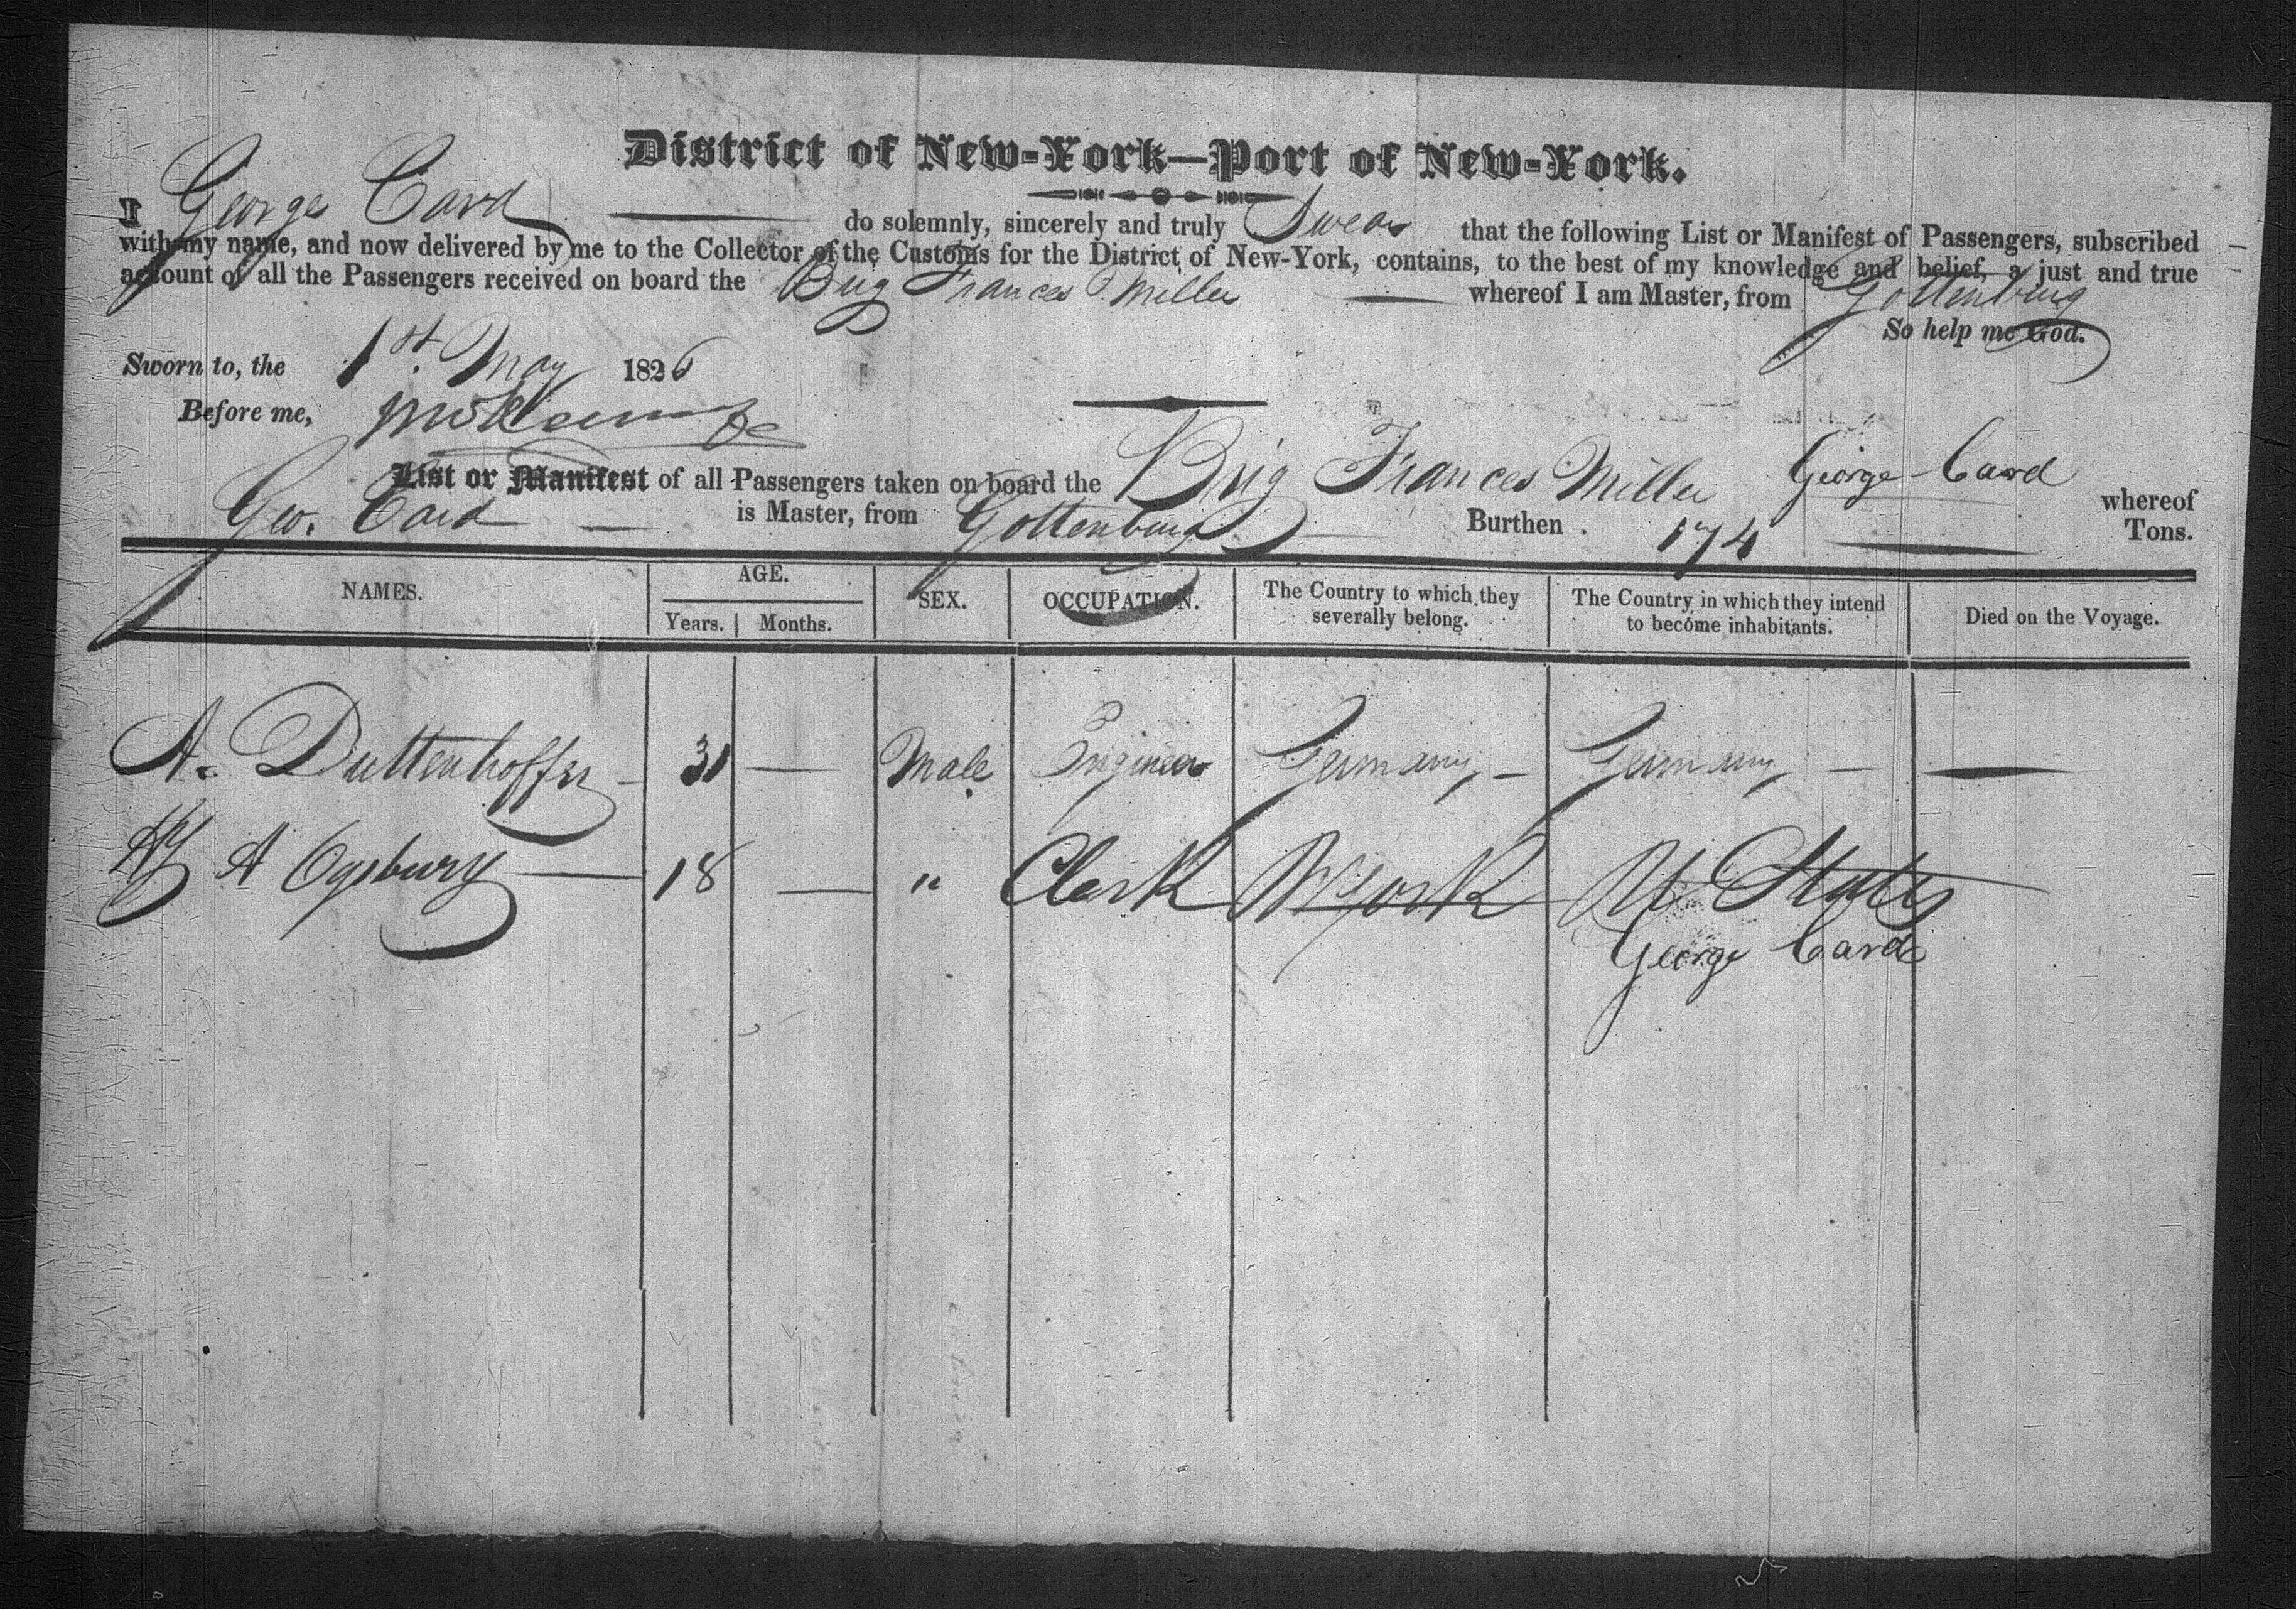 District of New-York—Port of New-York.
I George Card do solemnly, sincerely and truly Swear that the following List or Manifest of Passengers, subscribed
with my name, and now delivered by me to the Collector of the Customs for the District of New-York, contains, to the best of my knowledge and belief, a just and true
account of all the Passengers received on board the Brig Frances Miller whereof I am Master, from Gottenburg
So help me God.
Sworn to, the 1st. May 1826
Before me,
List or Manifest of all Passengers taken on board the Brig Frances Miller George Card whereof
Geo. Card is Master, from Gottenburg Burthen 174 Tons.
NAMES. AGE. SEX. OCCUPATION. The Country to which they severally belong. The Country in which they intend to become inhabitants. Died on the Voyage.
Years. Months.
A. Duttenhoffer 31 — Male Engineer Germany — Germany — —
Hy A Ogsbury — 18 — " Clark NYork U States
George Card